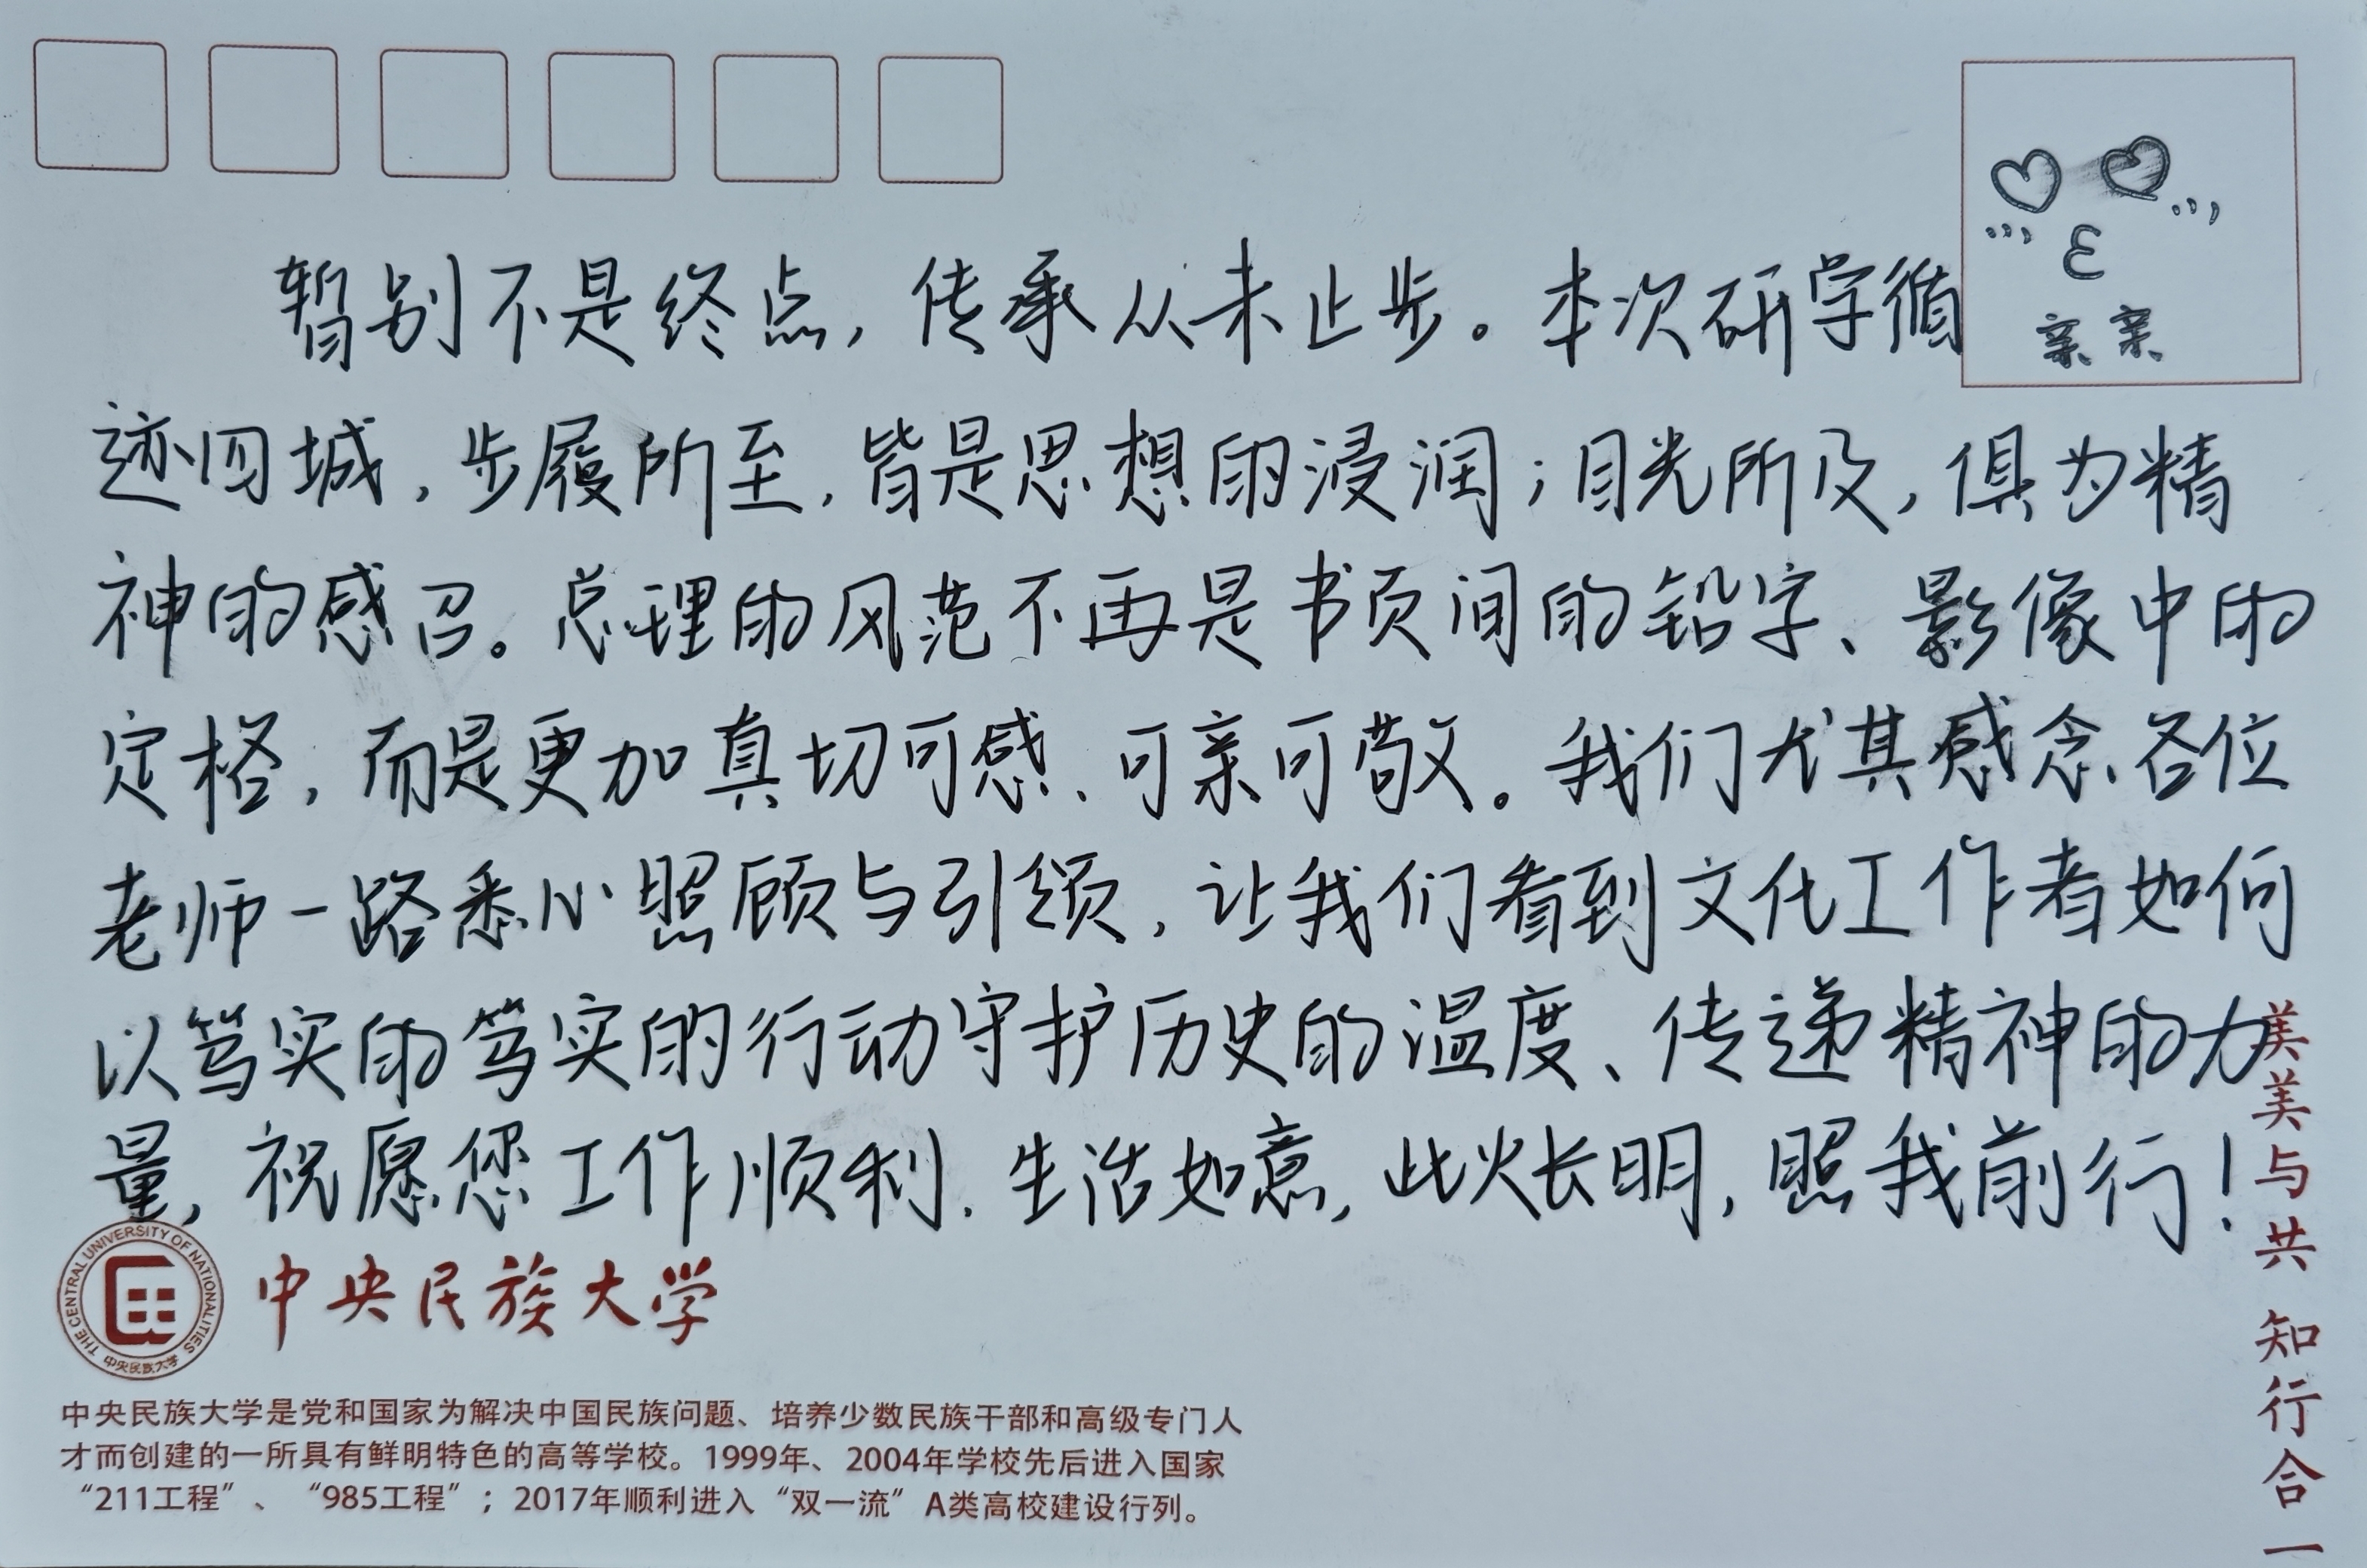 暂别不是终点，传承从未止步。本次研学循
迹四城，步履所至，皆是思想的浸润；目光所及，俱为精
神的感召。总理的风范不再是书页间的铅字、影像中的
定格，而是更加真切可感、可亲可敬。我们尤其感念各位
老师一路悉心照顾与引领，让我们看到文化工作者如何
以笃实的笃实的行动守护历史的温度、传递精神的力
量，祝愿您工作顺利、生活如意，此火长明，照我前行！
ε
亲亲
美美与共 知行合一
THE CENTRAL UNIVERSITY OF NATIONALITIES
中央民族大学
中央民族大学
中央民族大学是党和国家为解决中国民族问题、培养少数民族干部和高级专门人
才而创建的一所具有鲜明特色的高等学校。1999年、2004年学校先后进入国家
“211工程”、“985工程”；2017年顺利进入“双一流”A类高校建设行列。